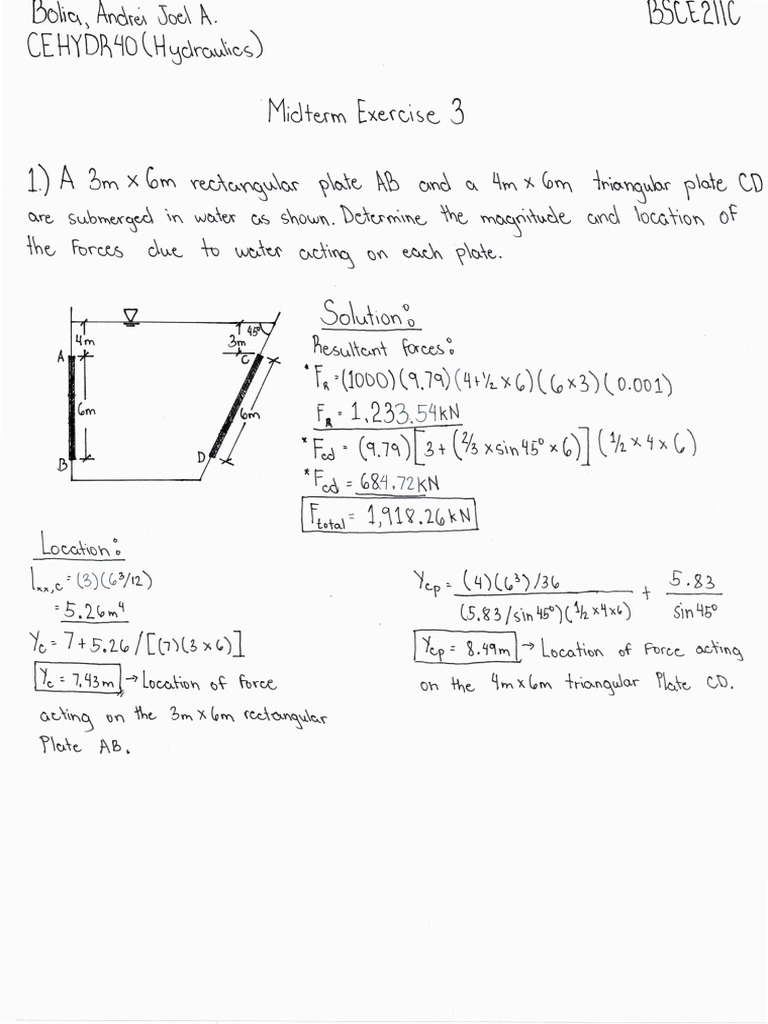 Bolia, Andrei Joel A.
BSCE211C
CEHYDR40 (Hydraulics)
Midterm Exercise 3
1.) A 3m × 6m rectangular plate AB and a 4m × 6m triangular plate CD
are submerged in water as shown. Determine the magnitude and location of
the forces due to water acting on each plate.
4m
A
6m
B
45°
3m
C
6m
D
Solution:
Resultant forces:
* F_R = (1000)(9.79)(4+1/2 × 6)(6×3)(0.001)
F_R = 1,233.54kN
* F_cd = (9.79)[3+(2/3 × sin45° × 6)](1/2 × 4 × 6)
* F_cd = 684.72kN
F_total = 1,918.26kN
Location:
I_xx,c = (3)(6³/12)
= 5.26m⁴
Y_c = 7+5.26/[(7)(3 × 6)]
Y_c = 7.43m → Location of force
acting on the 3m × 6m rectangular
Plate AB.
Y_cp = (4)(6³)/36 / (5.83/sin45°)(1/2 × 4 × 6) + 5.83 / sin45°
Y_cp = 8.49m → Location of force acting
on the 4m×6m triangular Plate CD.